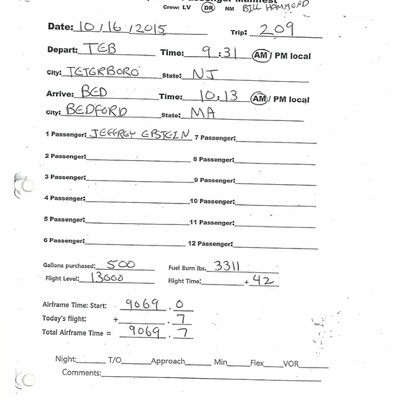 Passenger Manifest
Crew: LV DR NM BILL HAMMOND
Date: 10/16/2015 Trip: 209
Depart: TEB Time: 9:31 AM / PM local
City: TETERBORO State: NJ
Arrive: BED Time: 10:13 AM / PM local
City: BEDFORD State: MA
1 Passenger: JEFFREY EPSTEIN 7 Passenger:
2 Passenger: 8 Passenger:
3 Passenger: 9 Passenger:
4 Passenger: 10 Passenger:
5 Passenger: 11 Passenger:
6 Passenger: 12 Passenger:
Gallons purchased: 500 Fuel Burn lbs. 3311
Flight Level: 13000 Flight Time: + 42
Airframe Time: Start: 9069.0
Today's flight: + .7
Total Airframe Time = 9069.7
Night: T/O Approach Min Flex VOR
Comments: